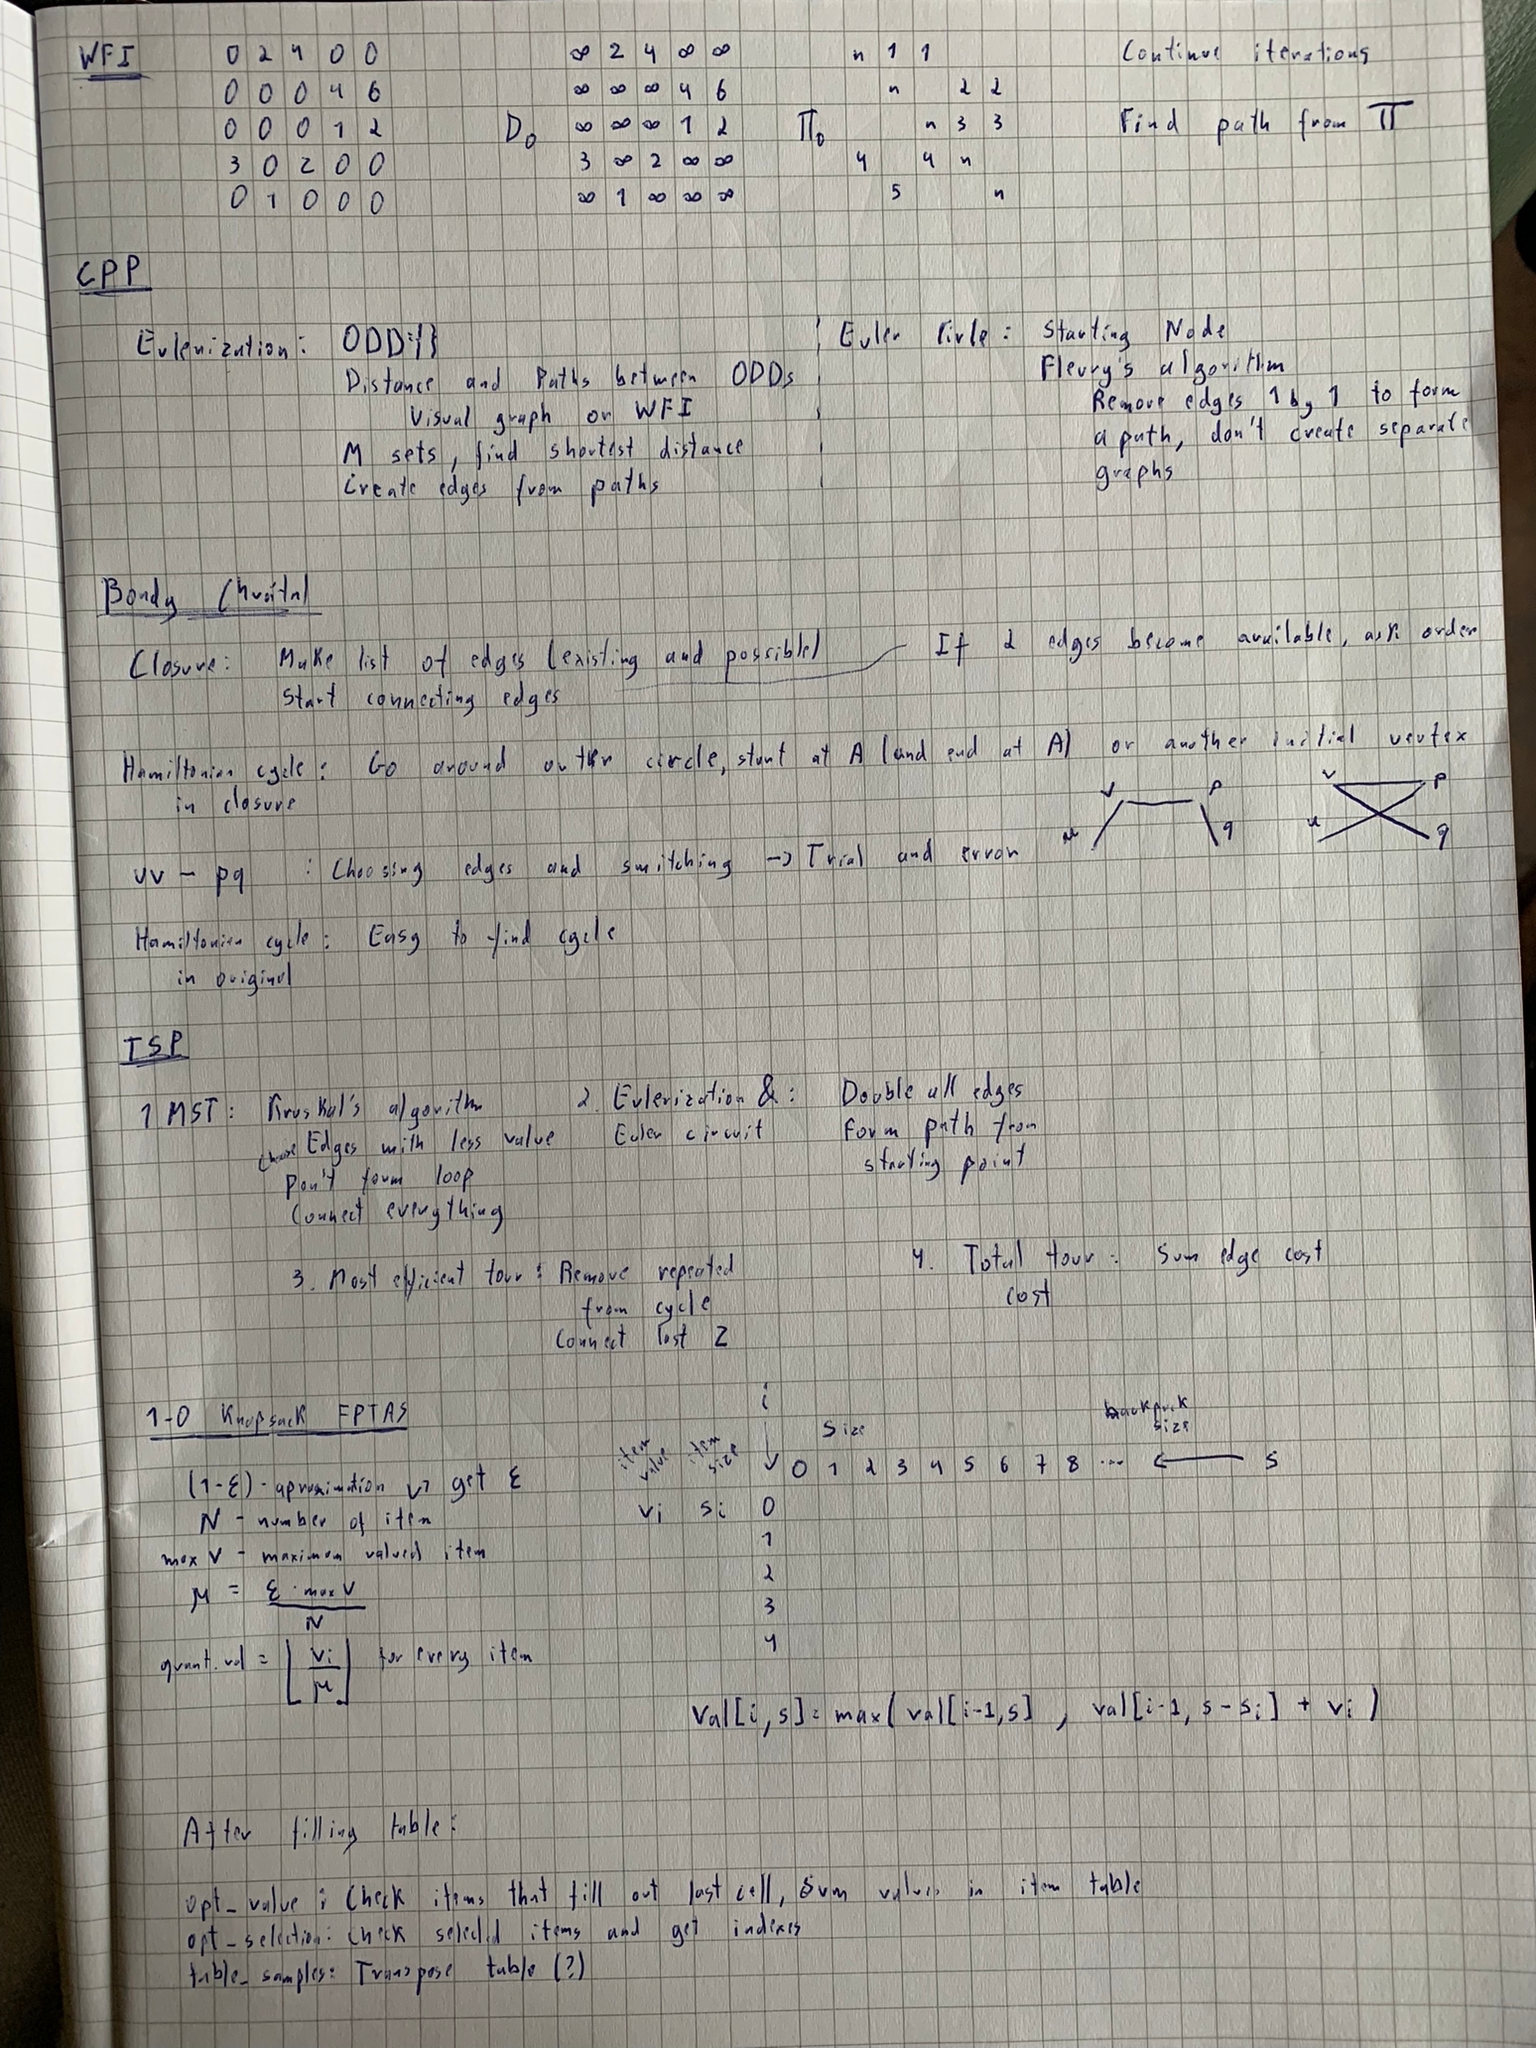 WFI
0 2 4 0 0
0 0 0 4 6
0 0 0 1 2
3 0 2 0 0
0 1 0 0 0
D0
∞ 2 4 ∞ ∞
∞ ∞ ∞ 4 6
∞ ∞ ∞ 1 2
3 ∞ 2 ∞ ∞
∞ 1 ∞ ∞ ∞
Π0
n 1 1
n 2 2
n 3 3
4 4 n
5 n
Continue iterations
Find path from Π
CPP
Eulerization: ODD={}
Distance and Paths between ODDs
Visual graph or WFI
M sets, find shortest distance
Create edges from paths
Euler : Starting Node
Fleury's algorithm
Remove edges 1 by 1 to form
a path, don't create separate
graphs
Bondy Chvátal
Closure: Make list of edges (existing and possible)
If 2 edges become available, ask order
Start connecting edges
Hamiltonian cycle: Go around outter circle, start at A (and end at A) or another initial vertex
in closure
v p
u q
v p
u q
uv - pq : Choosing edges and switching -> Trial and error
Hamiltonian cycle: Easy to find cycle
in original
TSP
1 MST: Kruskal's algorithm
choose Edges with less value
Don't form loop
Connect everything
2. Eulerization &: Double all edges
Euler circuit Form path from
starting point
3. Most efficient tour: Remove repeated
from cycle
Connect last 2
4. Total tour: Sum edge cost
cost
1-0 Knapsack FPTAS
(1-ε)-aproximation get ε
N - number of item
max V - maximum valued item
μ = ε · max V / N
quant. val = ⌊vi / μ⌋ for every item
i
size
backpack
size
item
value
item
size
0 1 2 3 4 5 6 7 8 ... ← s
vi si 0
1
2
3
4
Val[i,s] = max( val[i-1,s] , val[i-1, s-si] + vi )
After filling table:
opt_value: Check items that fill out last cell, sum values in item table
opt_selection: check selected items and get indexes
table_samples: Transpose table (?)